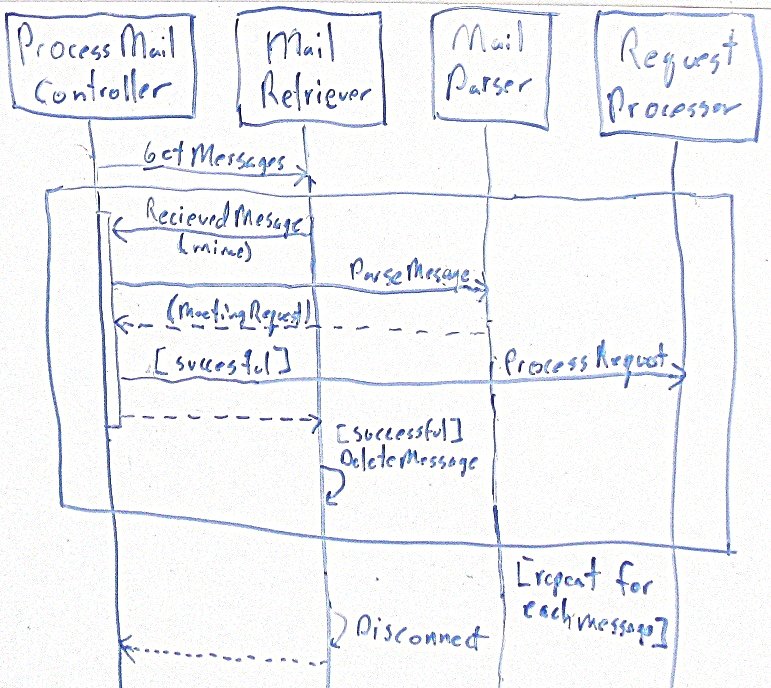 Process Mail
Controller
Mail
Retriever
Mail
Parser
Request
Processor
Get Messages
Recieved Mesage
(mime)
Parse Message
(Meeting Request)
[succesful]
Process Request
[successful]
Delete Message
[repeat for
each message]
Disconnect